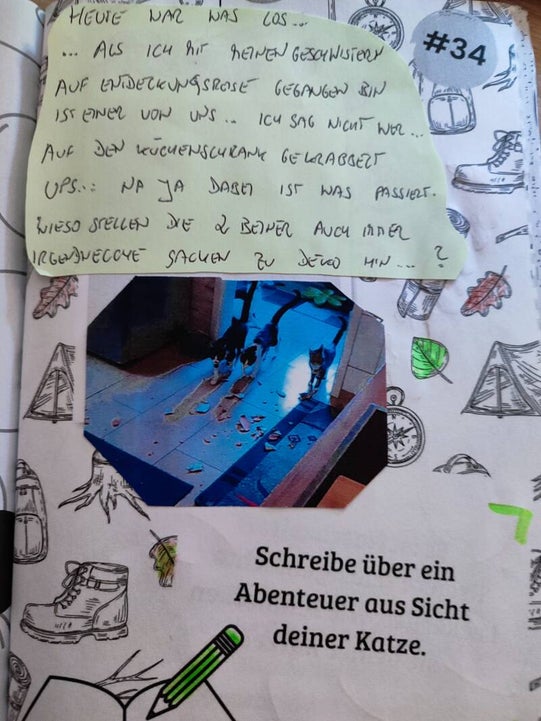 HEUTE WAR WAS LOS...
... ALS ICH MIT MEINEN GESCHWISTERN
AUF ENTDECKUNGSREISE GEGANGEN BIN
IST EINER VON UNS... ICH SAG NICHT WER...
AUF DEN KÜCHENSCHRANK GEKRABBELT
UPS..: NA JA DABEI IST WAS PASSIERT.
WIESO STELLEN DIE 2 BEINER AUCH IMMER
IRGENDWELCHE SACHEN ZU DEKO HIN... ?
#34
Schreibe über ein
Abenteuer aus Sicht
deiner Katze.